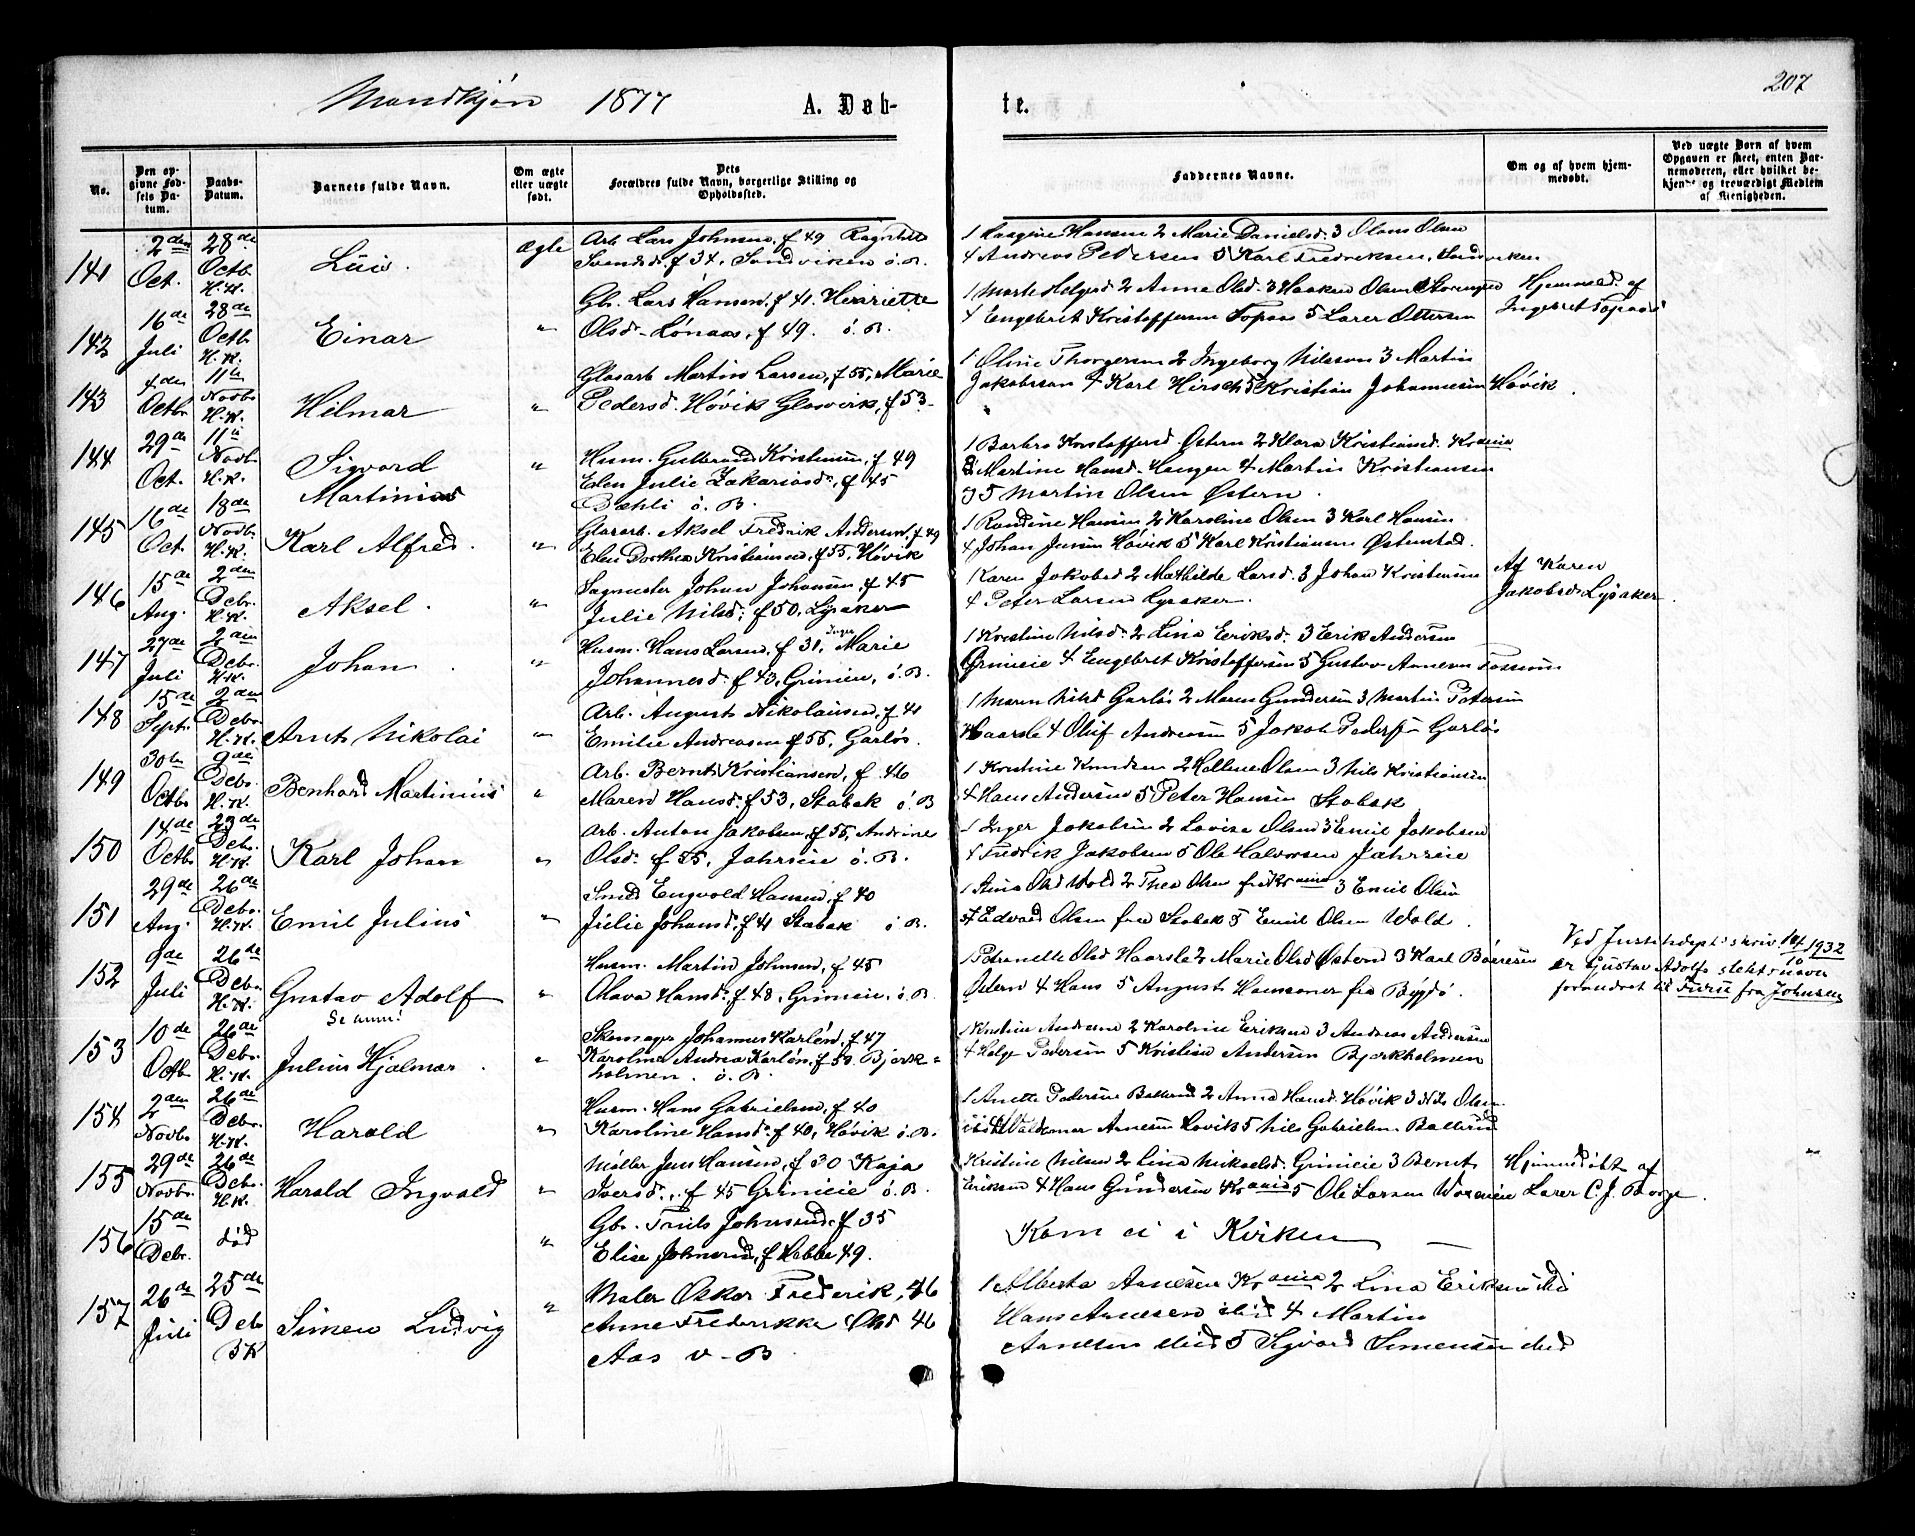 Mandkjøn 1877 A. Døb-
te. 207
No.
Den opgivne Fødsels Datum.
Daabs-Datum.
Barnets fulde Navn.
Om ægte eller uægte født.
Dets Forældres fulde Navn, borgerlige Stilling og Opholdssted.
Faddernes Navne.
Om og af hvem hjemmedøbt.
Ved uægte Børn af hvem Opgaven er skeet, enten Barnemoderen, eller hvilket bekjendt og troværdigt Medlem af Menigheden.
141 2den Oct. 28de Octb. H.K. ægte
Arb. Lars Johnsen, f 49 Ragnhild
Svendsd. f 34, Sandviken ö. B.
4 Andreas Pedersen 5 Karl Fredriksen, Sandviken
142 16de Juli 28de Octb. H.K. Einar "
Gb. Lars Hansen, f 41. Henriette
Olsd. Lønaas, f 49. ö. B.
1 Marte Helgesd 2 Anna Olsd. 3 Haaken Olsen
4 Engebret Kristoffersen Topaas 5 Lærer Ottersen
Hjemmed. af
Ingebret Topaas
143 4de Octb. 11te Novb. H.K. Hilmar "
Glasarb. Martin Larsen, f 55, Marie
Pedersd. Høvik Glasverk, f 53
1 Oline Thorgersen 2 Ingeborg Nilsson 3 Martin
Jakobsson 4 Karl Hirsch 5 Kristian Johannesen Høvik.
144 29de Oct. 11te Novb. H.K. Sigvard Martinius "
Husm. Gulbrand Kristiansen, f 49
Elen Julie Zakariasd., f 45
Dæhli ö. B.
1 Barbro Kristoffersd. Østern 2 Klara Kristiansd. Kr.ania
3 Martine Hansd. Haugen 4 Martin Kristiansen
5 Martin Olsen Østern.
145 16de Oct. 18de Novb. H.K. Karl Alfred. "
Glasarb. Aksel Fredrik Andersen, f 49
Elen Dorthea Kristiansen, f 55. Høvik
1 Randine Hansen 2 Karoline Olsen 3 Karl Hansen
4 Johan Jensen Høvik 5 Karl Kristiansen Østenstad.
146 15de Aug. 2den Debr. H.K. Aksel. "
Sagmester Johan Johansen f 45
Julie Nilsd: f 50, Lysaker
1 Karen Jakobsd 2 Mathilde Larsd. 3 Johan Kristiansen
4 Peter Larsen Lysaker.
Af Karen
Jakobsd. Lysaker.
147 27de Juli 2den Debr. H.K. Johan. "
Husm. Hans Larsen, f 31, Inger Marie
Johannesd. f 43, Grinien, ö. B.
1 Kristine Nilsd. 2 Lina Eriksd. 3 Erik Andersen
Grinieie 4 Engebret Kristoffersen 5 Gustav Arnesen Fossum
148 15de Sept. 2den Debr. H.K. Arnt Nikolai "
Arb. August Nikolaisen, f 41
Emilie Andreasen f 55, Garløs.
1 Maren Nilsd Garløs 2 Maren Gundersen 3 Martin Petersen
Haarsle 4 Oluf Andreasen 5 Jakob Pedersen Garløs
149 30te Octb. 9de Debr. H.K. Benhard Martinius "
Arb. Bernt Kristiansen, f 46
Maren Hansd. f 53, Stabæk ö. B
1 Kristine Knudsen 2 Hellene Olsen 3 Nils Kristiansen
4 Hans Andersen 5 Peter Hansen Stabæk
150 14de Octb. 23de Debr. H.K. Karl Johan "
Arb. Anton Jakobsen, f 55, Andrine
Olsd. f 55, Jahreie ö. B.
1 Inger Jakobsen 2 Lovise Olsen 3 Emil Jakobsen
4 Fredrik Jakobsen 5 Ole Halvorsen Jahreie
151 29de Aug. 26de Debr. H.K. Emil Julius "
Smed Engvold Hansen, f 40
Julie Johansd. f 41 Stabæk ö B.
1 Olsd Wold 2 Thea Olsen fra Kr.ania 3 Emil Olsen
4 Edvard Olsen fra Stabæk 5 Emil Olsen Wold.
152 9de Juli 26de Debr. H.K. Gustav Adolf "
Se anm!
Husm. Martin Johnsen, f 45
Olava Hansd. f 48, Grinieie, ö. B.
1 Petronelle Olsd Haarsle 2 Marie Olsd Østern 3 Karl
Østern 4 Hans 5 August Hansener fra Bygdø.
Ved Justitsdept's skriv. 14/10 1932
er Gustav Adolfs slektsnavn
forandret til Furu fra Johnsen
153 10de Octb. 26de Debr. H.K. Julius Hjalmar. "
Skomager Johannes Karlén, f 47
Karoline Andrea Karlén, f 50. Bjerk-
holmen. ö. B.
1 Kristine Andersen 2 Karoline Eriksen 3 Andreas Andersen
4 Helge Pedersen 5 Kristine Andersen Bjerkholmen
154 2den Novb. 26de Debr. H.K. Harald "
Husm. Hans Gabrielsen, f 40
Karoline Hansd. f 40, Høvik ö. B.
1 Anette Pedersen Ballerud 2 Anna Hansd. Høvik 3 Nils Olsen
ibid 4 Valdemar Arnesen Høvik 5 Nils Gabrielsen Ballerud
155 29de Novbr. 26de Debr. H.K. Harald Ingvald "
Møller Jens Hansen, f 30 Kaja
Iversd., f 45 Grinieie ö. B.
Kristine Nilsen 2 Lina Mikaelsd. Grinieie 3 Bernt
Eriksen 4 Hans Gundersen Kr.ania 5 Ole Larsen
Hjemmedøbt af
Lærer C. J. Borge.
156 15de Debr. død "
Gbr. Truls Johnsrud, f 35
Elise Johnsrud, f Habbe 49.
Kom ei i Kirken —
157 26de Juli 25de Deb Simen Ludvig "
Maler Oskar Frederik, 46
Anne Frederikke Olsd 46
Aas v. B.
1 Alberta Arnesen Kr.ania 2 Lina Eriksen ibid
Hans Arnesen ibid 4 Martin
Arnesen ibid 5 Sigvard Simensen ibid